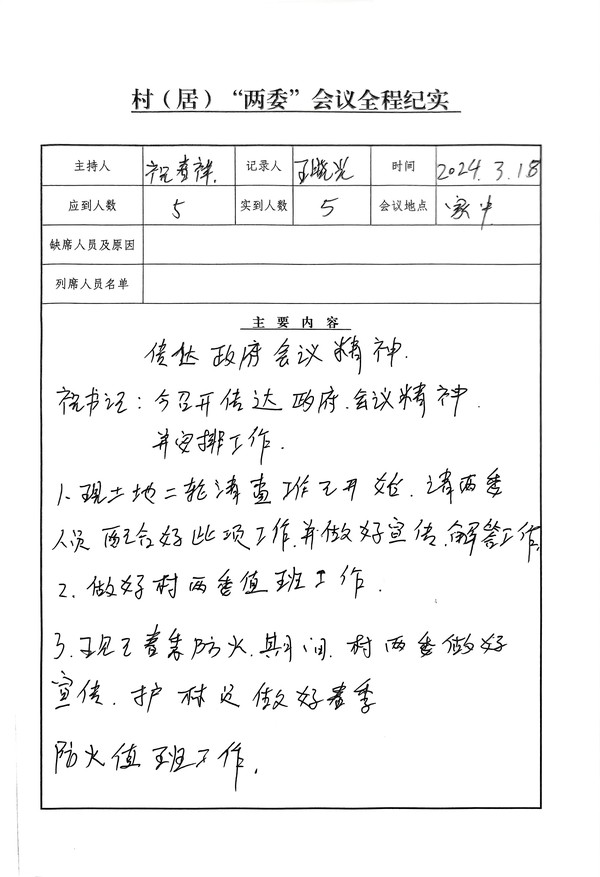 村（居）“两委”会议全程纪实
主持人 祝春祥 记录人 王晓光 时间 2024.3.18
应到人数 5 实到人数 5 会议地点 家中
缺席人员及原因
列席人员名单
主要内容
传达政府会议精神.
祝书记：今召开传达政府.会议精神.
并安排工作.
1.现土地二轮清查工作已开始.请两委
人员配合好此项工作.并做好宣传.解答工作.
2.做好村两委值班工作.
3.现已春季防火.期间.村两委做好
宣传.护林员做好春季
防火值班工作.